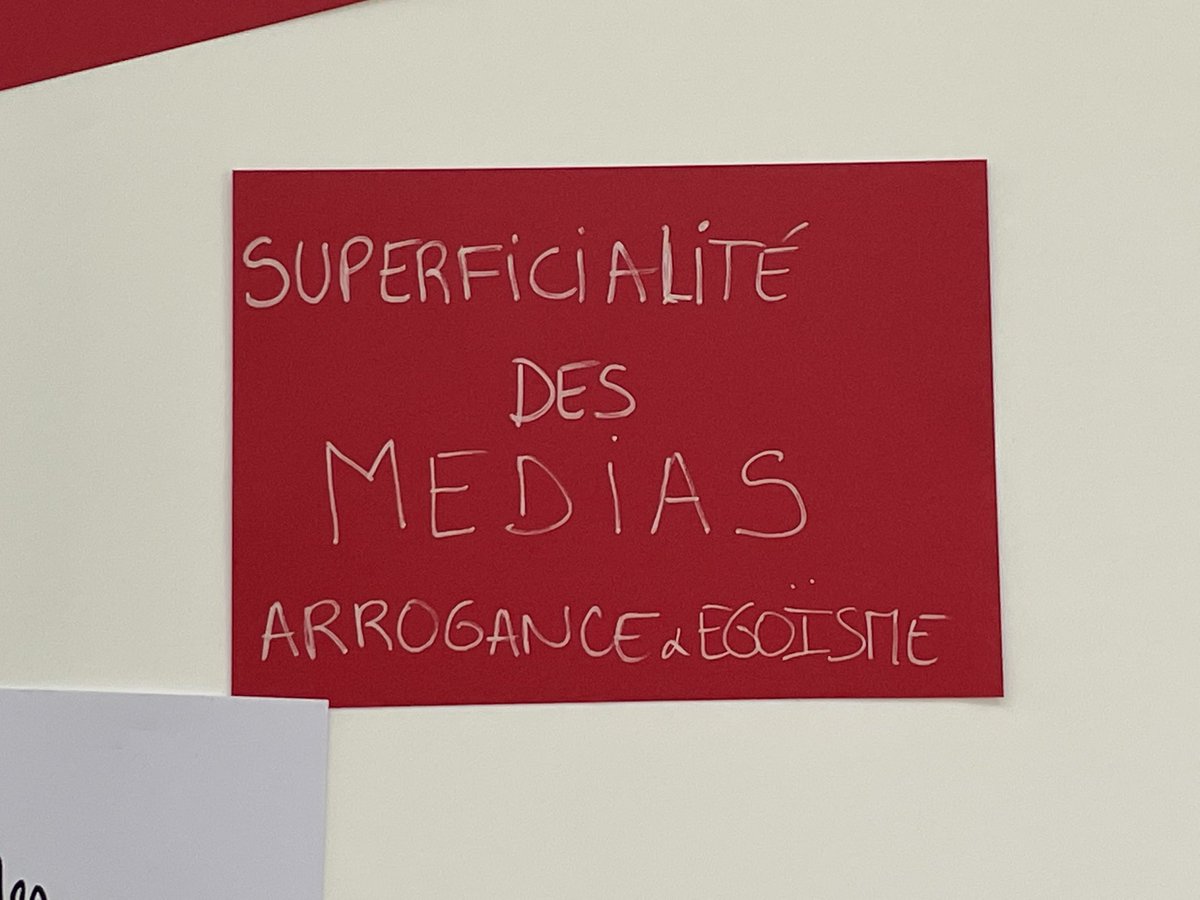 SUPERFiCiALiTÉ
DES
MEDiAS
ARROGANCE & EGOÏSME